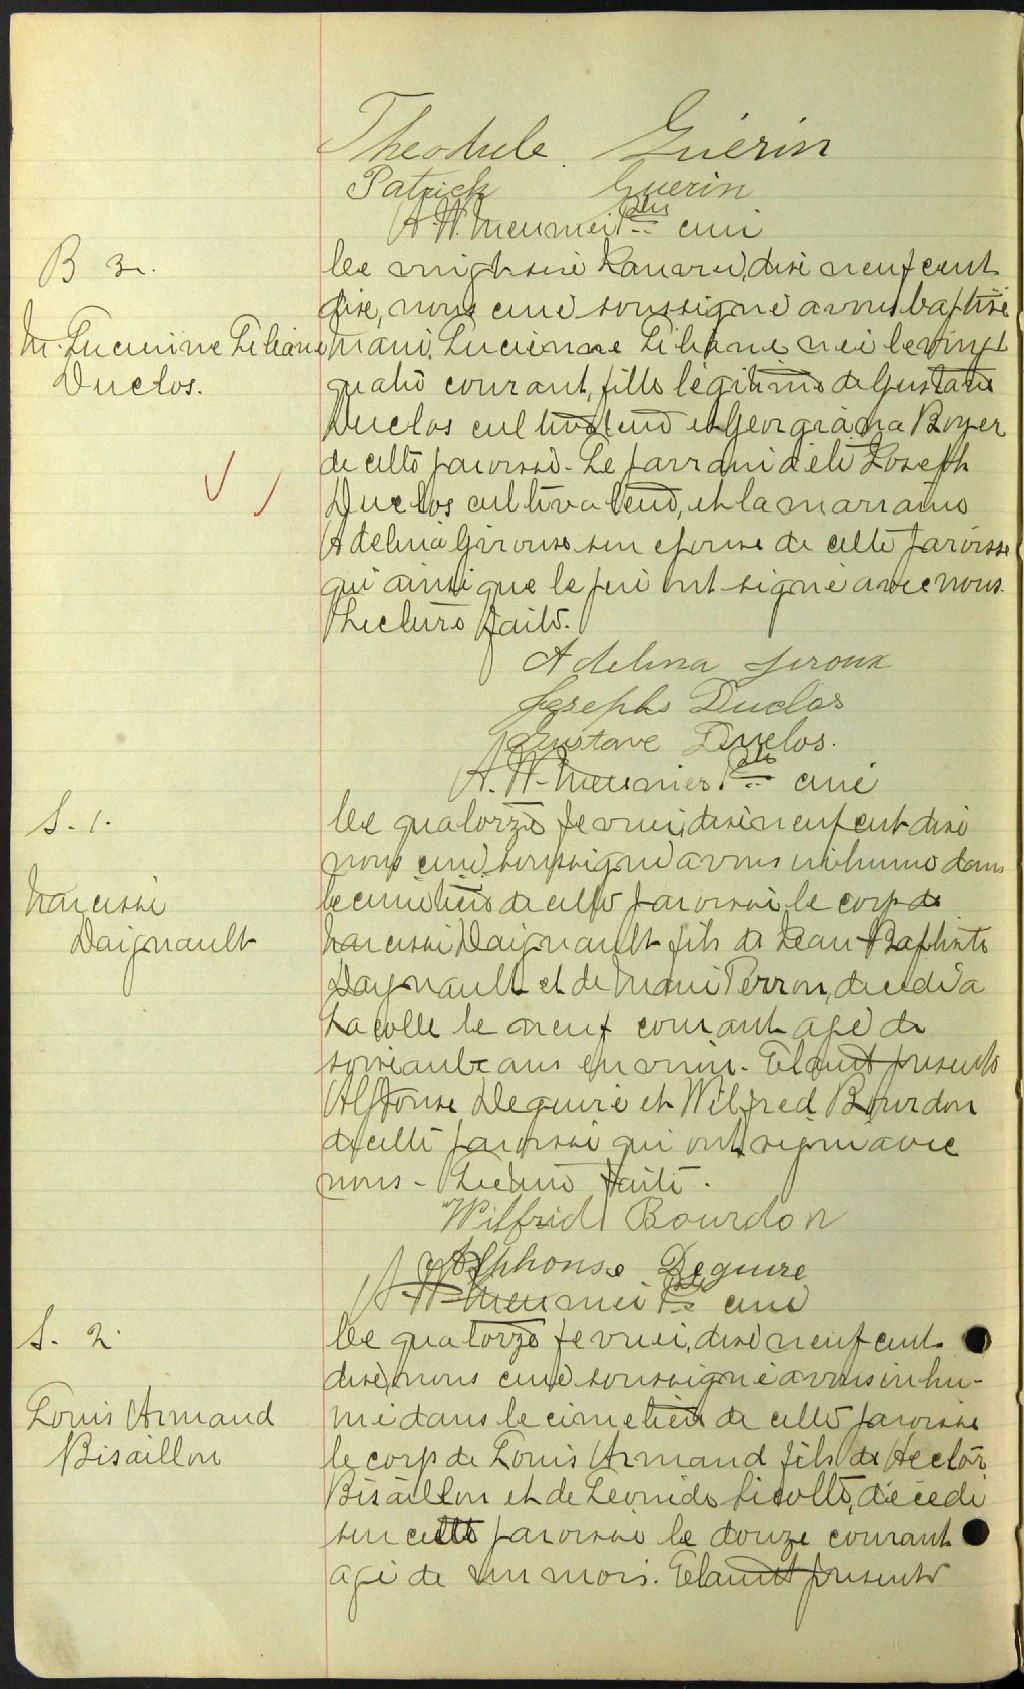 Theodule Guérin
Patrick Guerin
A. W. Meunier Ptre curé
B 3.
M. Lucienne Liliane
Duclos.
Le vingt six Janvier, dix neuf cent
dix, nous curé soussigné avons baptisé
Marie, Lucienne Liliane née le vingt
quatre courant, fille légitime de Gustave
Duclos cultivateur et Georgiana Boyer
de cette paroisse. Le parrain a été Joseph
Duclos cultivateur, et la marraine
Adelina Giroux son epouse de cette paroisse
qui ainsi que le père ont signé avec nous.
Lecture faite.
Adelina Giroux
Joseph Duclos
Gustave Duclos.
A. W. Meunier Ptre curé
S. 1.
Narcisse
Daignault
Le quatorze fevrier, dix neuf cent dix
nous curé, soussigné avons inhumé dans
le cimetière de cette paroisse le corps de
Narcisse Daignault fils de Jean-Baptiste
Daignault et de Marie Perron, decedé à
Lacolle le neuf courant agé de
ans environ. Etaient présents
Alphonse Deguire et Wilfred Bourdon
de cette paroisse qui ont signé avec
nous - Lecture faite.
Wilfrid Bourdon
Alphonse Deguire
A. W. Meunier Ptre curé
S. 2.
Louis Armand
Bisaillon
Le quatorze fevrier, dix neuf cent
dix, nous curé soussigné avons inhu-
mé dans le cimetière de cette paroisse
le corps de Louis Armand fils de Hector
Bisaillon et de Leonide, décédé
sur cette paroisse le douze courant
agé de un mois. Etaient présents